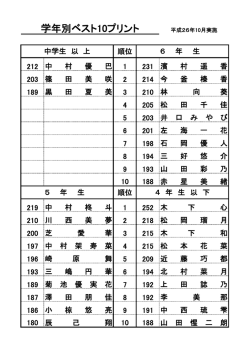 学年別ベスト10プリント 平成26年10月実施
中学生 以 上 順位 6 年 生
212 中 村 優 巴 1 231 濱 村 遥 香
203 篠 田 美 咲 2 214 今 釜 榛 香
189 黒 田 夏 美 3 210 林 向 葵
4 205 松 田 千 佳
5 203 井 口 み や び
6 201 左 海 一 花
7 198 石 岡 優 人
8 194 三 好 悠 介
9 193 山 田 彩 乃
10 188 赤 星 美 緒
5 年 生 順位 4 年 生 以 下
219 中 村 柊 斗 1 252 木 下 心
210 川 西 美 夢 2 218 松 岡 瑠 月
200 芝 愛 華 3 215 木 下 和
197 中 村 架 寿 菜 4 215 松 本 花 菜
196 崎 原 舞 5 209 近 藤 巧 都
193 三 嶋 円 華 6 194 北 村 菜 月
189 菊 池 優 実 花 7 192 上 田 誌 乃
187 澤 田 朋 佳 8 192 李 美 那
186 小 椋 悠 亮 9 191 中 西 琉 雫
180 辰 己 翔 10 188 山 田 惺 二 朗